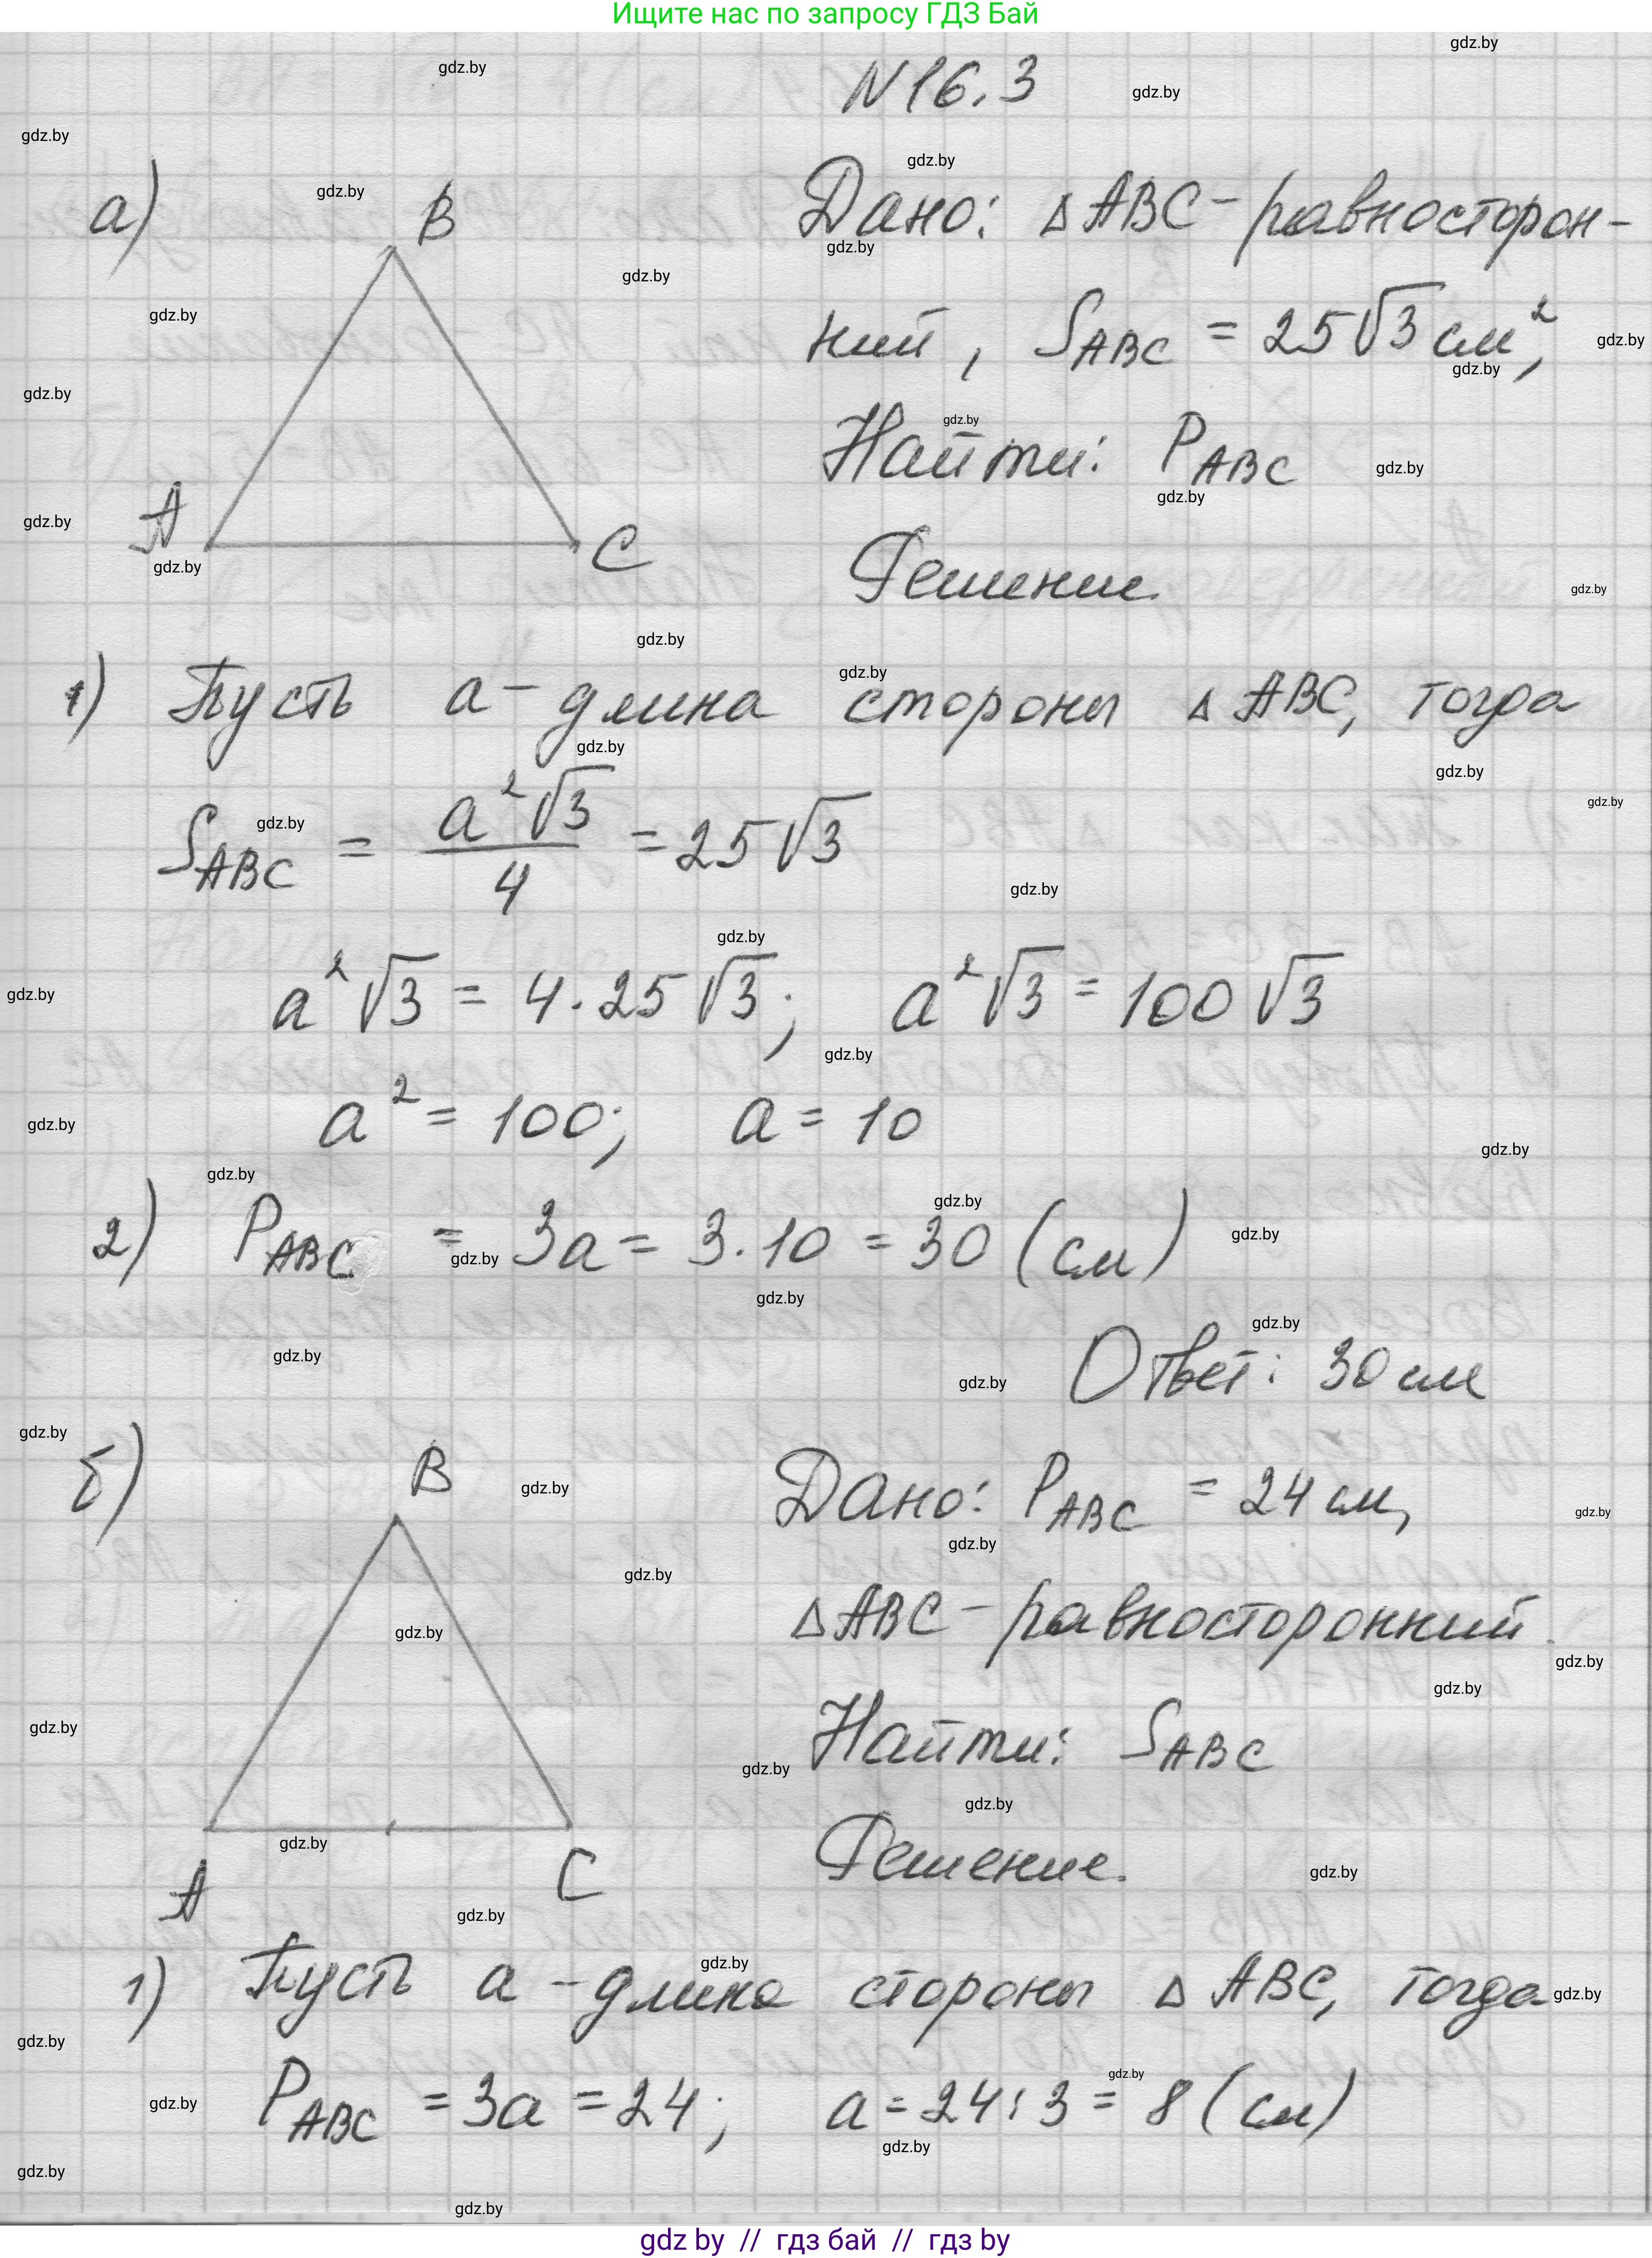 Ищите нас по запросу ГДЗ Бай
N 16.3
а)
B
A
C
Дано: Δ ABC - равносторон-
ний, S_ABC = 25√3 см²,
Найти: P_ABC
Решение
1) Пусть a - длина стороны Δ ABC, тогда
S_ABC = a²√3/4 = 25√3
a²√3 = 4·25√3; a²√3 = 100√3
a² = 100; a = 10
2) P_ABC = 3a = 3·10 = 30 (см)
Ответ: 30 см
б)
B
A
C
Дано: P_ABC = 24 см,
Δ ABC - равносторонний.
Найти: S_ABC
Решение.
1) Пусть a - длина стороны Δ ABC, тогда
P_ABC = 3a = 24; a = 24:3 = 8 (см)
gdz.by
gdz by // гдз бай // гдз by